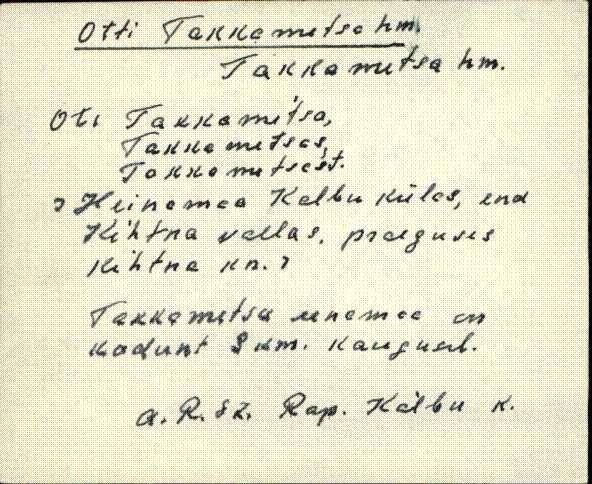 Otti Takkametsa hm.
Takkametsa hm.
Oti Takkametsa,
Takkametsas,
Takkametsast.
Heinamaa Kälbu külas, end
Kihtna vallas, praeguses
Kihtna kn.
Takkametsa einamaa on
kodunt 8 km. kaugusel.
Rap. Kälbu k.